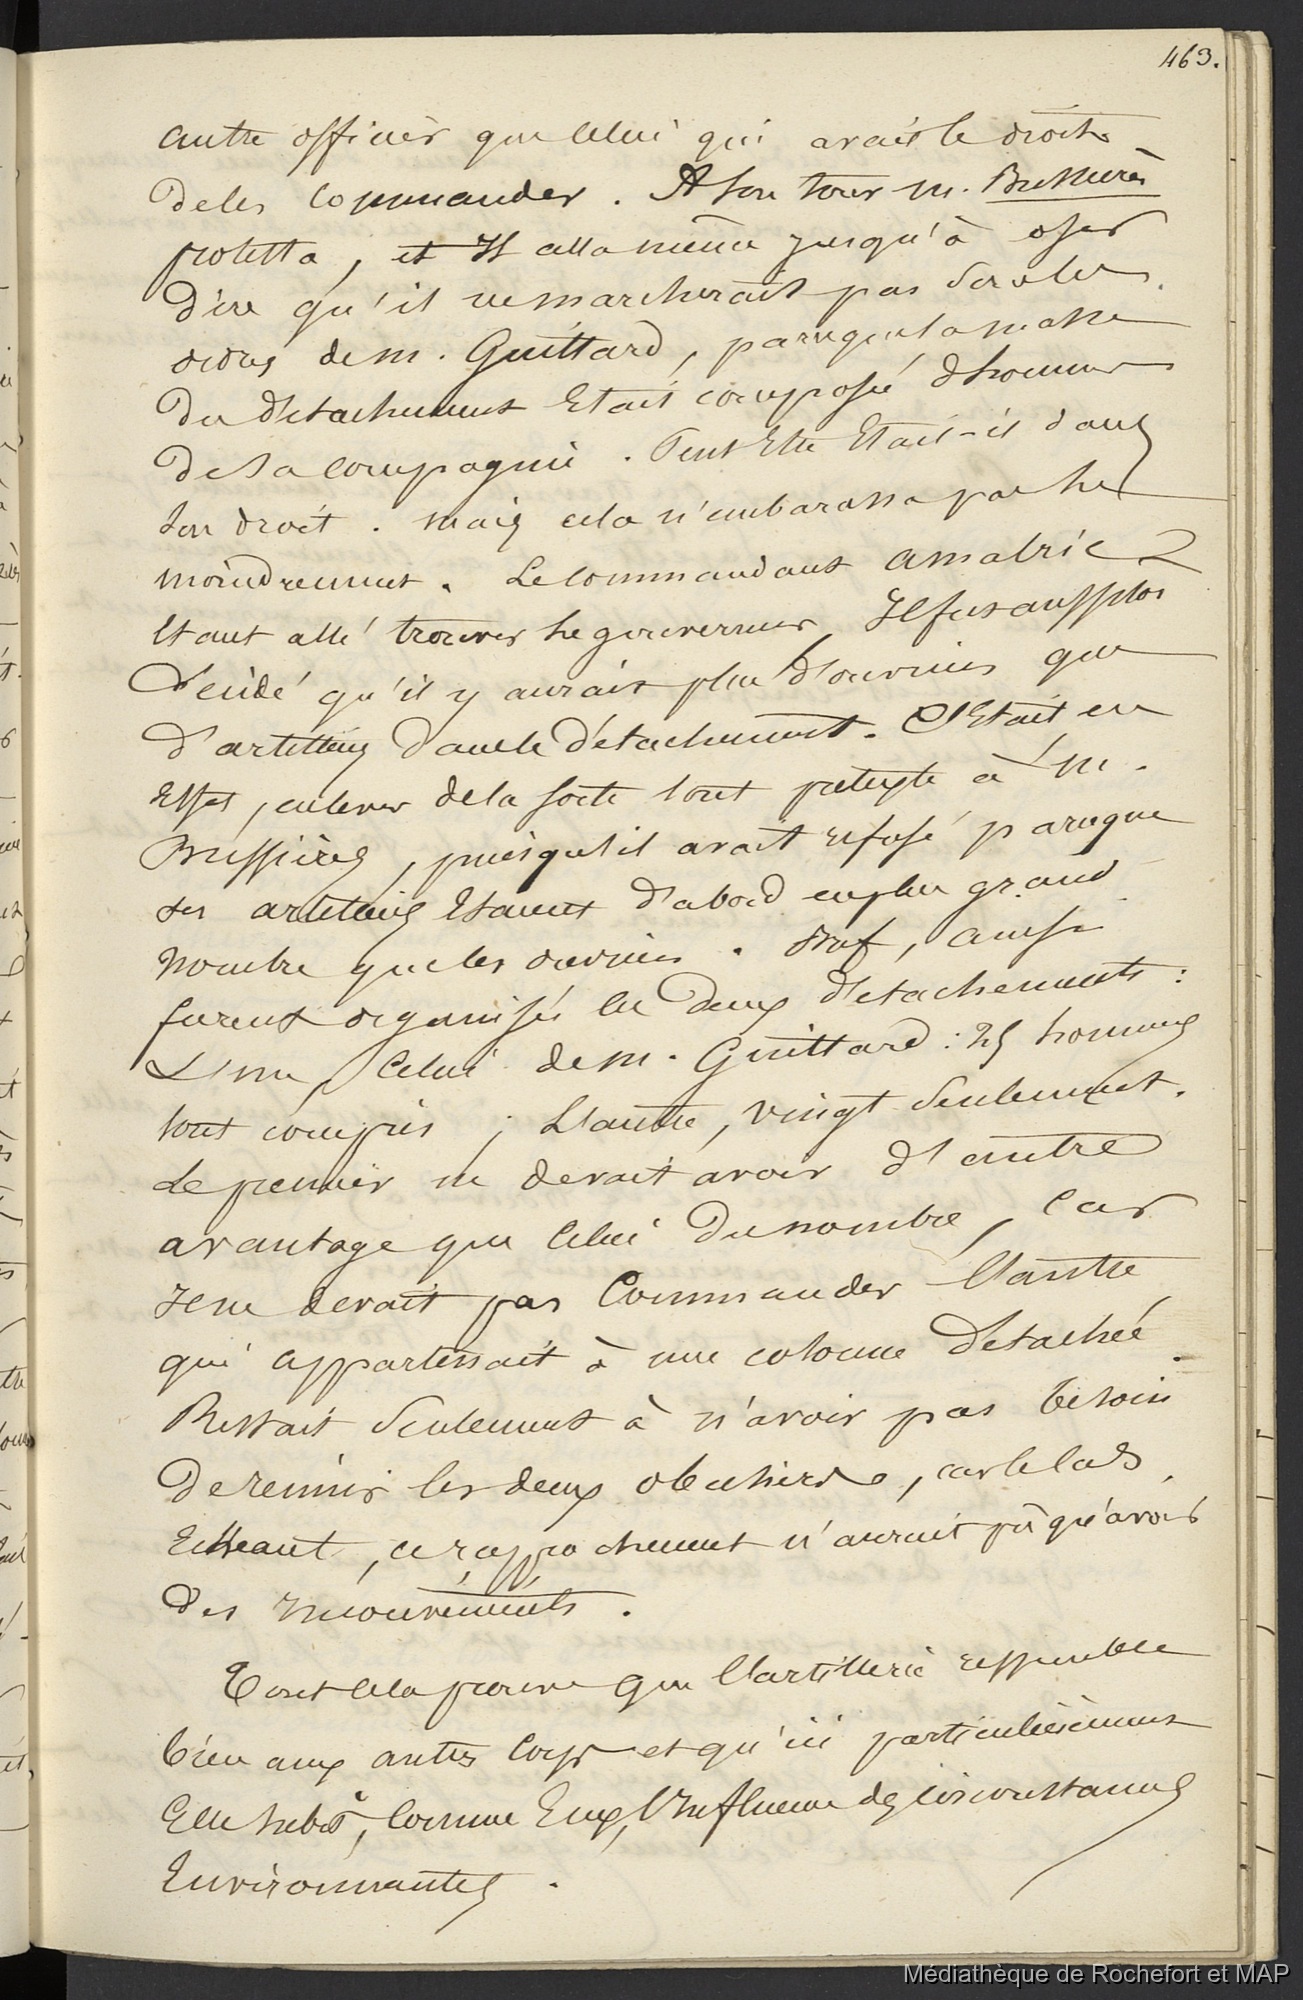 463.
autre officier que celui qui avait le droit
de les commander. A son tour M. Bussières
protesta, et Il alla même jusqu'à oser
dire qu'il ne marcherait pas sous les
ordres de M. Guittard, parceque la masse
du détachement Etait composée d'hommes
de sa compagnie. Peut Etre Etait-il dans
son droit. mais cela n'embarassa pas le
moindrement. Le commandant Amalric
Etant allé trouver le gouverneur, Il fut aussitot
décidé qu'il y aurait plus d'ouvriers que
d'artilleurs dans le détachement. C'Etait en
Effet, enlever de la sorte tout pretexte à M.
Bussières, puisqu'il avait refusé parceque
ses artilleurs Etaient d'abord en plus grand
nombre que les ouvriers. Bref, ainsi
furent organisés les deux détachements:
L'un, celui de M. Guittard: 25 hommes
tout compris; L'autre, vingt seulement.
Le premier ne devait avoir d'autre
avantage que celui du nombre, car
Je ne devait pas Commander l'autre
qui appartenait à une colonne détachée.
Restait seulement à n'avoir pas besoin
de reunir les deux obusiers, car le cas
Echeant, ce rapprochement n'aurait pû qu'avoir
des inconvénients.
Tout cela prouve que l'artillerie ressemble
bien aux autres corps et qu'ici particulièrement
Elle subit, comme Eux, l'Influence des circonstances
Environnantes.
Médiathèque de Rochefort et MAP